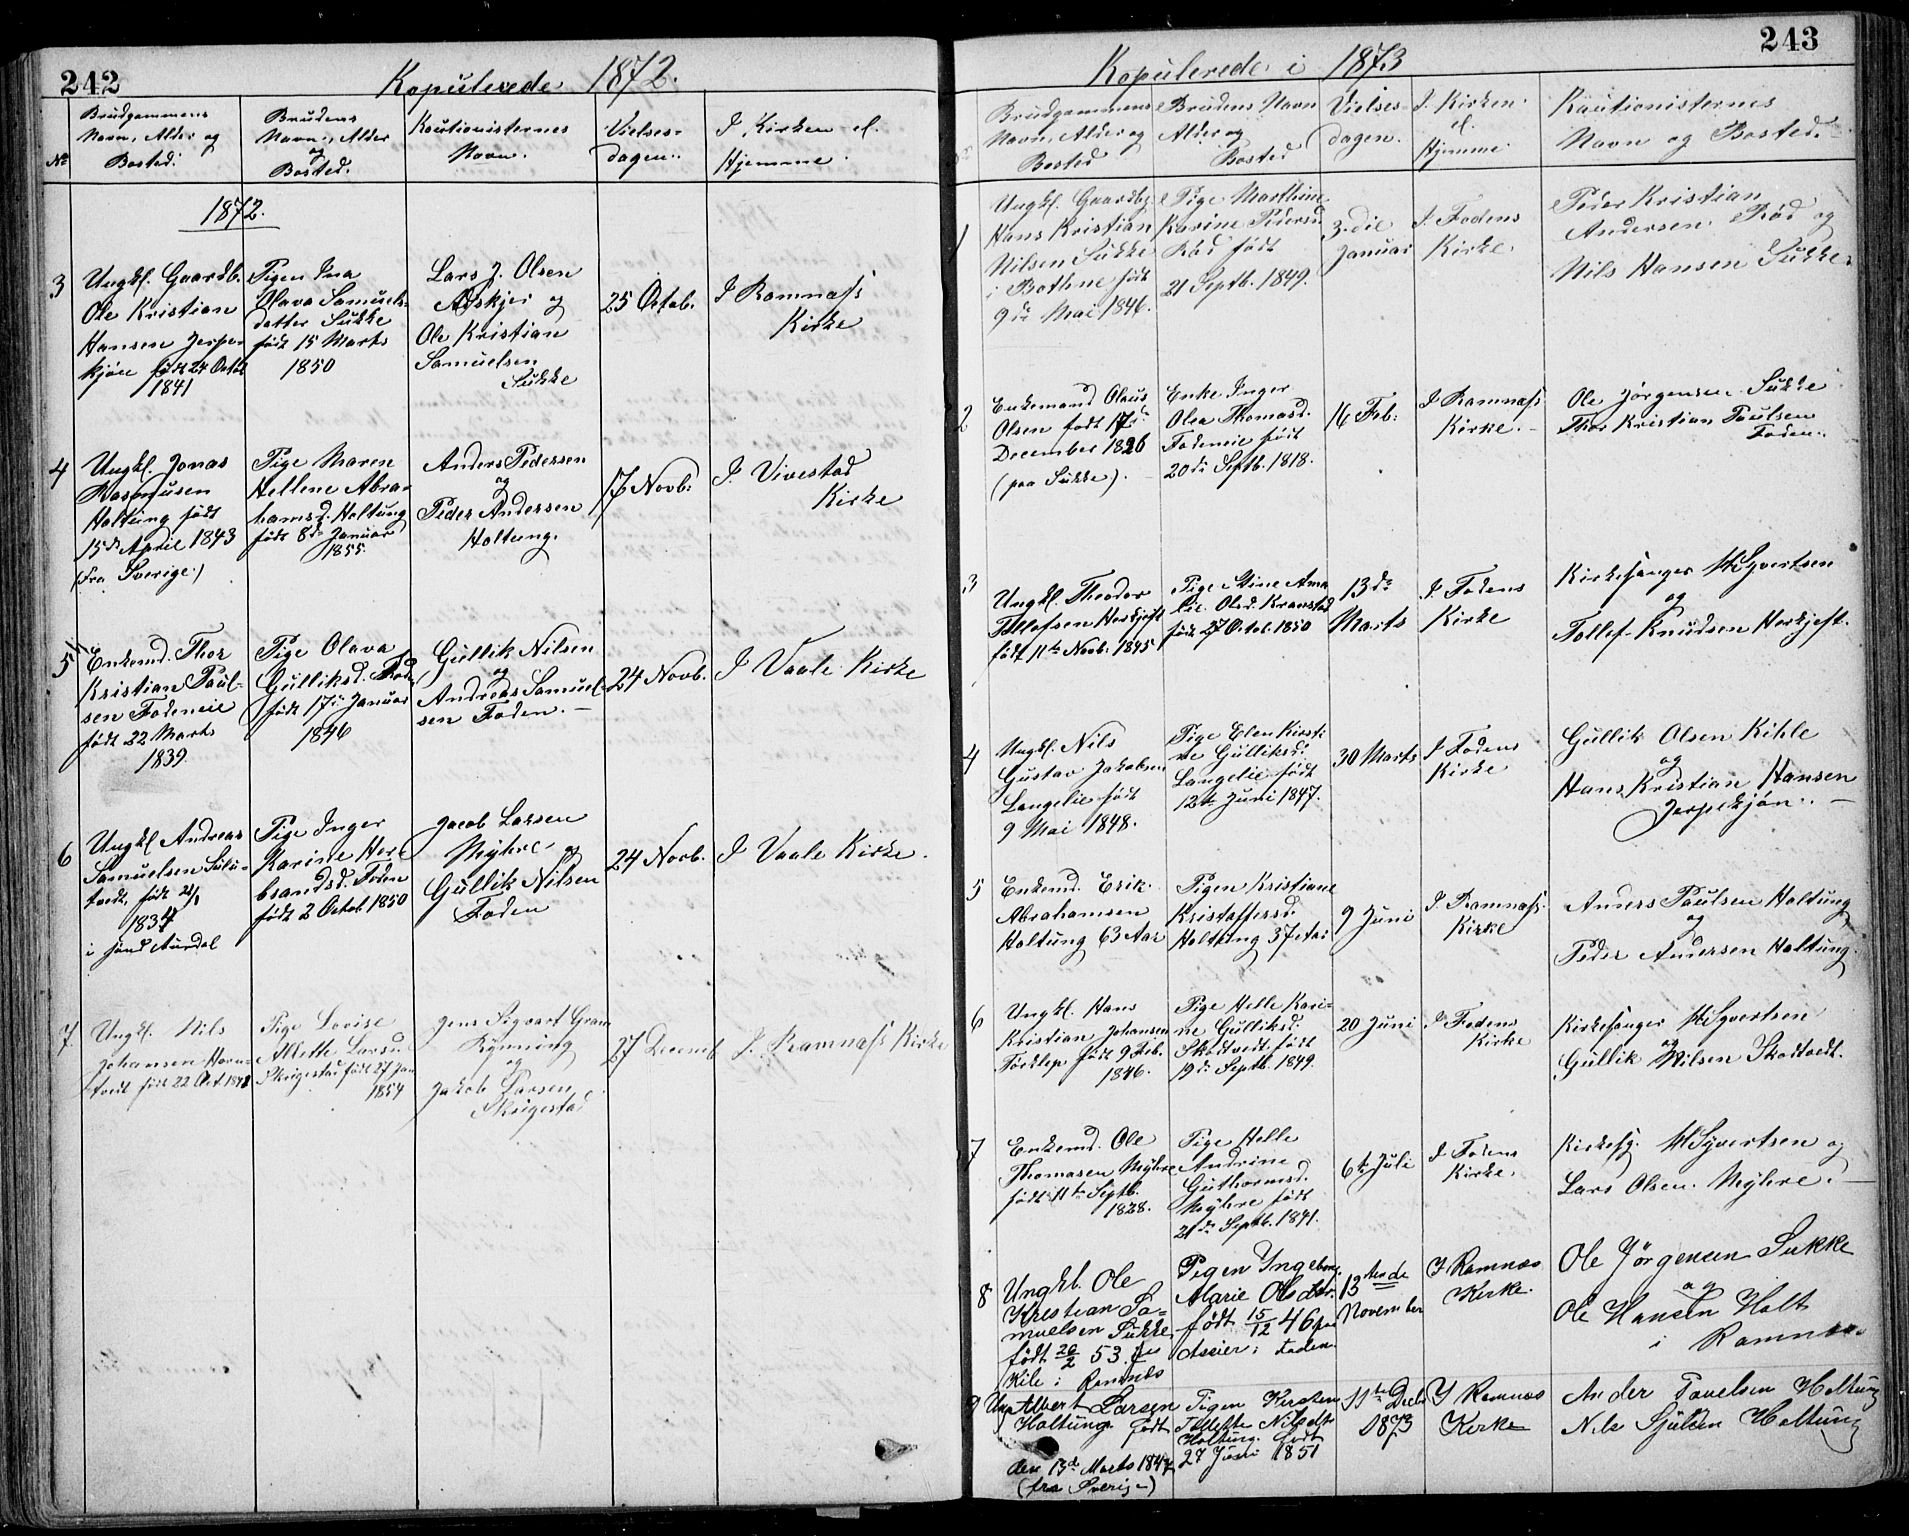 242
Kopulerede 1872.
No
Brudgommens
Navn, Alder og
Bosted.
Brudens
Navn, Alder
og
Bosted.
Kautionisternes
Navn.
Vielses-
dagen.
I Kirken el.
Hjemme.
1872.
3
Ungkl. Gaardb.
Ole Kristian
Hansen Jerpe-
kjøn født 24 Octob
1841
Pigen Ina
Olava Samuels-
datter Sukke
født 15 Marts
1850
Lars J. Olsen
Askjer og
Ole Kristian
Samuelsen
Sukke
25 Octob.
I Ramnæs
Kirke
4
Ungkl. Jonas
Rasmusen
Holtung født
15de April 1843
(Fra Sverige)
Pige Maren
Hellene Abra-
hamsd. Holtung
født 8de Januar
1855.
Anders Pedersen
og
Peder Andersen
Holtung.
17 Novb.
I Vivestad
Kirke
5
Enkemd. Thor
Kristian Paul-
sen Fodeneie
født 22 Marts
1839
Pige Olava
Gulliksd. Foden
født 17de Januar
1846
Gullik Nilsen
og
Andreas Samuel-
sen Foden.
24 Novb.
I Vaale Kirke
6
Ungkl. Andreas
Samuelsen
født
1834
i sønd Aurdal
Pige Inger
Karine Her-
brandsd. Foden
født 2 Octob 1850
Jacob Larsen
Myhre og
Gullik Nilsen
Foden
24 Novb.
I Vaale Kirke.
7
Ungkl. Nils
Johansen Horn-
tvedt født 22 Oct. 1848
Pige Lovise
Allette Larsd.
Skugestad født 27 Jan
1854
Jens Sigvart Gram
Rynning
og
Jakob Larsen
Skugestad
27 Decemb
I Ramnæs Kirke
243
Kopulerede i 1873
Brudgommens
Navn, Alder og
Bosted
Brudens Navn
Alder og
Bosted
Vielses-
dagen.
I Kirken
el.
Hjemme.
Kautionisternes
Navn og Bosted.
1
Ungkl. Gaardbr.
Hans Kristian
Nilsen Sukke
i Bothne født
9de Mai 1846.
Pige Marthine
Karine Pedersd.
Rød født
21 Septb. 1849.
3die
Januar
I Fodens
Kirke.
Peder Kristian
Andersen Rød og
Nils Hansen Sukke.
2
Enkemand Olaus
Olsen født 17de
December 1826
(paa Sukke).
Enke Inger
Olea Thomasd.
Fodeneie født
20de Septb. 1818.
16 Feb.
I Ramnæs
Kirke.
Ole Jørgensen Sukke
Thor Kristian Paulsen
Foden.
3
Ungkl. Theodor
Tollefsen Herkjest
født 11te Novb. 1845
Pige Stine Ama-
lie Olsd. Kranstad
født 27 Octob. 1850
13de
Marts
I Fodens
Kirke
Kirkesanger M Syvertsen
og
Tollef Knudsen Herkjest.
4
Ungkl. Nils
Gustav Jakobsen
Langelie født
9 Mai 1848.
Pige Elen Kirsti-
ne Gulliksd.
Langelie født
12te Juni 1847.
30 Marts
I Fodens
Kirke
Gullik Olsen Kihle
og
Hans Kristian Hansen
Jerpekjøn.
5
Enkemd. Erik
Abrahamsen
Holtung 63 Aar
Pigen Kristiane
Kristoffersd.
Holtung 37 Aar
9 Juni
I Ramnæs
Kirke
Anders Paulsen Holtung
og
Peder Andersen Holtung.
6
Ungkl. Hans
Kristian Johansen
født 9 Feb.
1846.
Pige Helle Kari-
ne Gulliksd.
Skodtvedt født
19de Septb. 1849.
20 Juni
I Fodens
Kirke
Kirkesanger M Syvertsen
og
Gullik Nilsen Skodtvedt.
7
Enkemd. Ole
Thomasen Myhre
født 11te Septb.
1828.
Pige Helle
Andrine
Guthormsd.
Myhre født
21de Septb. 1841.
6te Juli
I Fodens
Kirke.
Kirkesg. M Syvertsen og
Lars Olsen Myhre.
8
Ungkl. Ole
Kristian Sa-
muelsen Sukke
født 20/2 53. paa
Kile i Ramnæs
Pigen Ingeborg
Marie Olsdatr.
født 15/12 46 paa
Assier i Foden.
13tende
November
I Ramnæs
Kirke.
Ole Jørgensen Sukke
og
Ole Hansen Holt
i Ramnæs
9
Ung Albert Larsen
Holtung født
den 13de Marts 1847
(fra Sverige)
Pigen Kirsten
Tollette Nilsdtr
Holtung født
27 Juni 1851
11te Decb
1873
I Ramnæs
Kirke
Ander Pauelsen Holtung
Nils Sjulsen Holtung